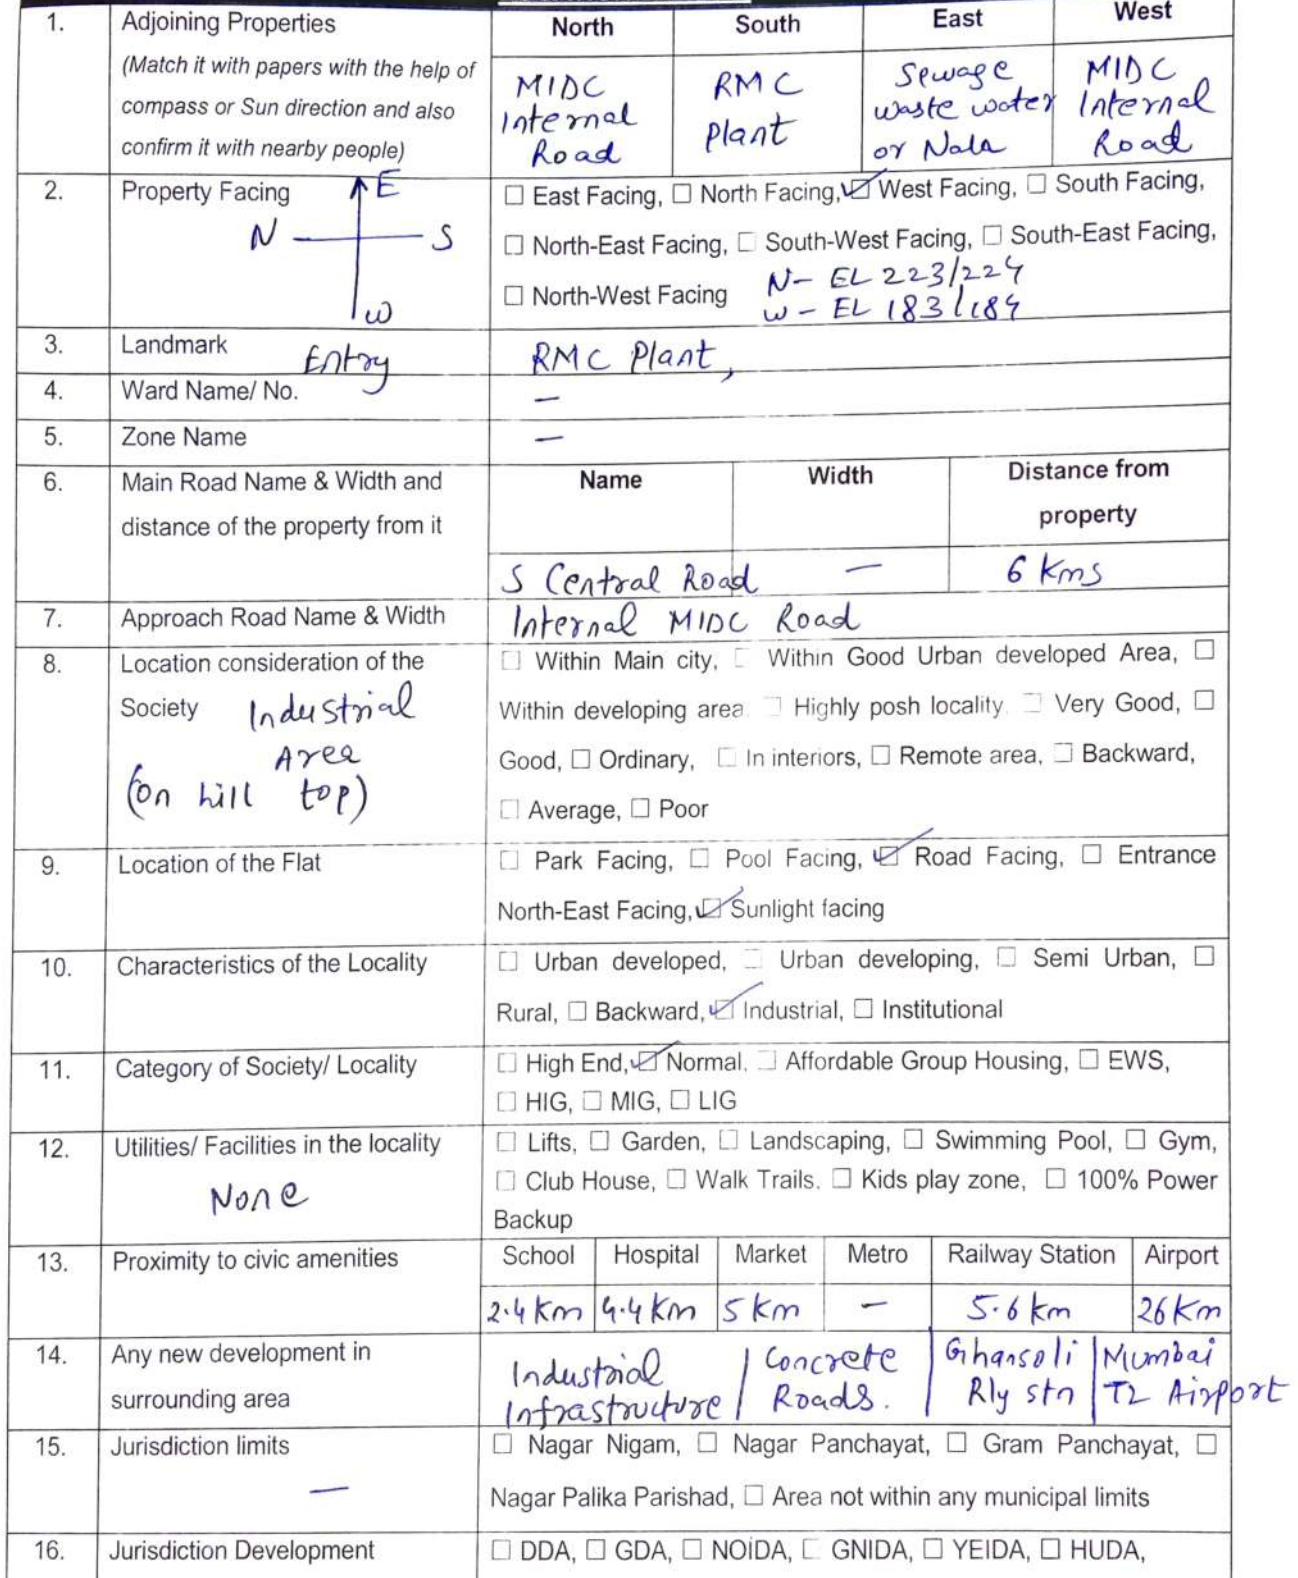 1. Adjoining Properties North South East West
(Match it with papers with the help of
compass or Sun direction and also
confirm it with nearby people)
MIDC Internal Road
RMC Plant
Sewage waste water or Nala
MIDC Internal Road
2. Property Facing
E
N S
W
☐ East Facing, ☐ North Facing, ☑ West Facing, ☐ South Facing,
☐ North-East Facing, ☐ South-West Facing, ☐ South-East Facing,
☐ North-West Facing
N- EL 223/224
W - EL 183/184
3. Landmark Entry RMC Plant,
4. Ward Name/ No. –
5. Zone Name –
6. Main Road Name & Width and
distance of the property from it
Name Width Distance from
property
S Central Road – 6 Kms
7. Approach Road Name & Width Internal MIDC Road
8. Location consideration of the
Society Industrial
Area
(on hill top)
☐ Within Main city, ☐ Within Good Urban developed Area, ☐
Within developing area. ☐ Highly posh locality. ☐ Very Good, ☐
Good, ☐ Ordinary, ☐ In interiors, ☐ Remote area, ☐ Backward,
☐ Average, ☐ Poor
9. Location of the Flat
☐ Park Facing, ☐ Pool Facing, ☑ Road Facing, ☐ Entrance
North-East Facing, ☑ Sunlight facing
10. Characteristics of the Locality
☐ Urban developed, ☐ Urban developing, ☐ Semi Urban, ☐
Rural, ☐ Backward, ☑ Industrial, ☐ Institutional
11. Category of Society/ Locality
☐ High End, ☑ Normal, ☐ Affordable Group Housing, ☐ EWS,
☐ HIG, ☐ MIG, ☐ LIG
12. Utilities/ Facilities in the locality
None
☐ Lifts, ☐ Garden, ☐ Landscaping, ☐ Swimming Pool, ☐ Gym,
☐ Club House, ☐ Walk Trails. ☐ Kids play zone, ☐ 100% Power
Backup
13. Proximity to civic amenities
School Hospital Market Metro Railway Station Airport
2.4 Km 4.4 Km 5 Km – 5.6 km 26 Km
14. Any new development in
surrounding area
Industrial Infrastructure / Concrete Roads.
Ghansoli Rly stn
Mumbai T2 Airport
15. Jurisdiction limits
–
☐ Nagar Nigam, ☐ Nagar Panchayat, ☐ Gram Panchayat, ☐
Nagar Palika Parishad, ☐ Area not within any municipal limits
16. Jurisdiction Development
☐ DDA, ☐ GDA, ☐ NOIDA, ☐ GNIDA, ☐ YEIDA, ☐ HUDA,